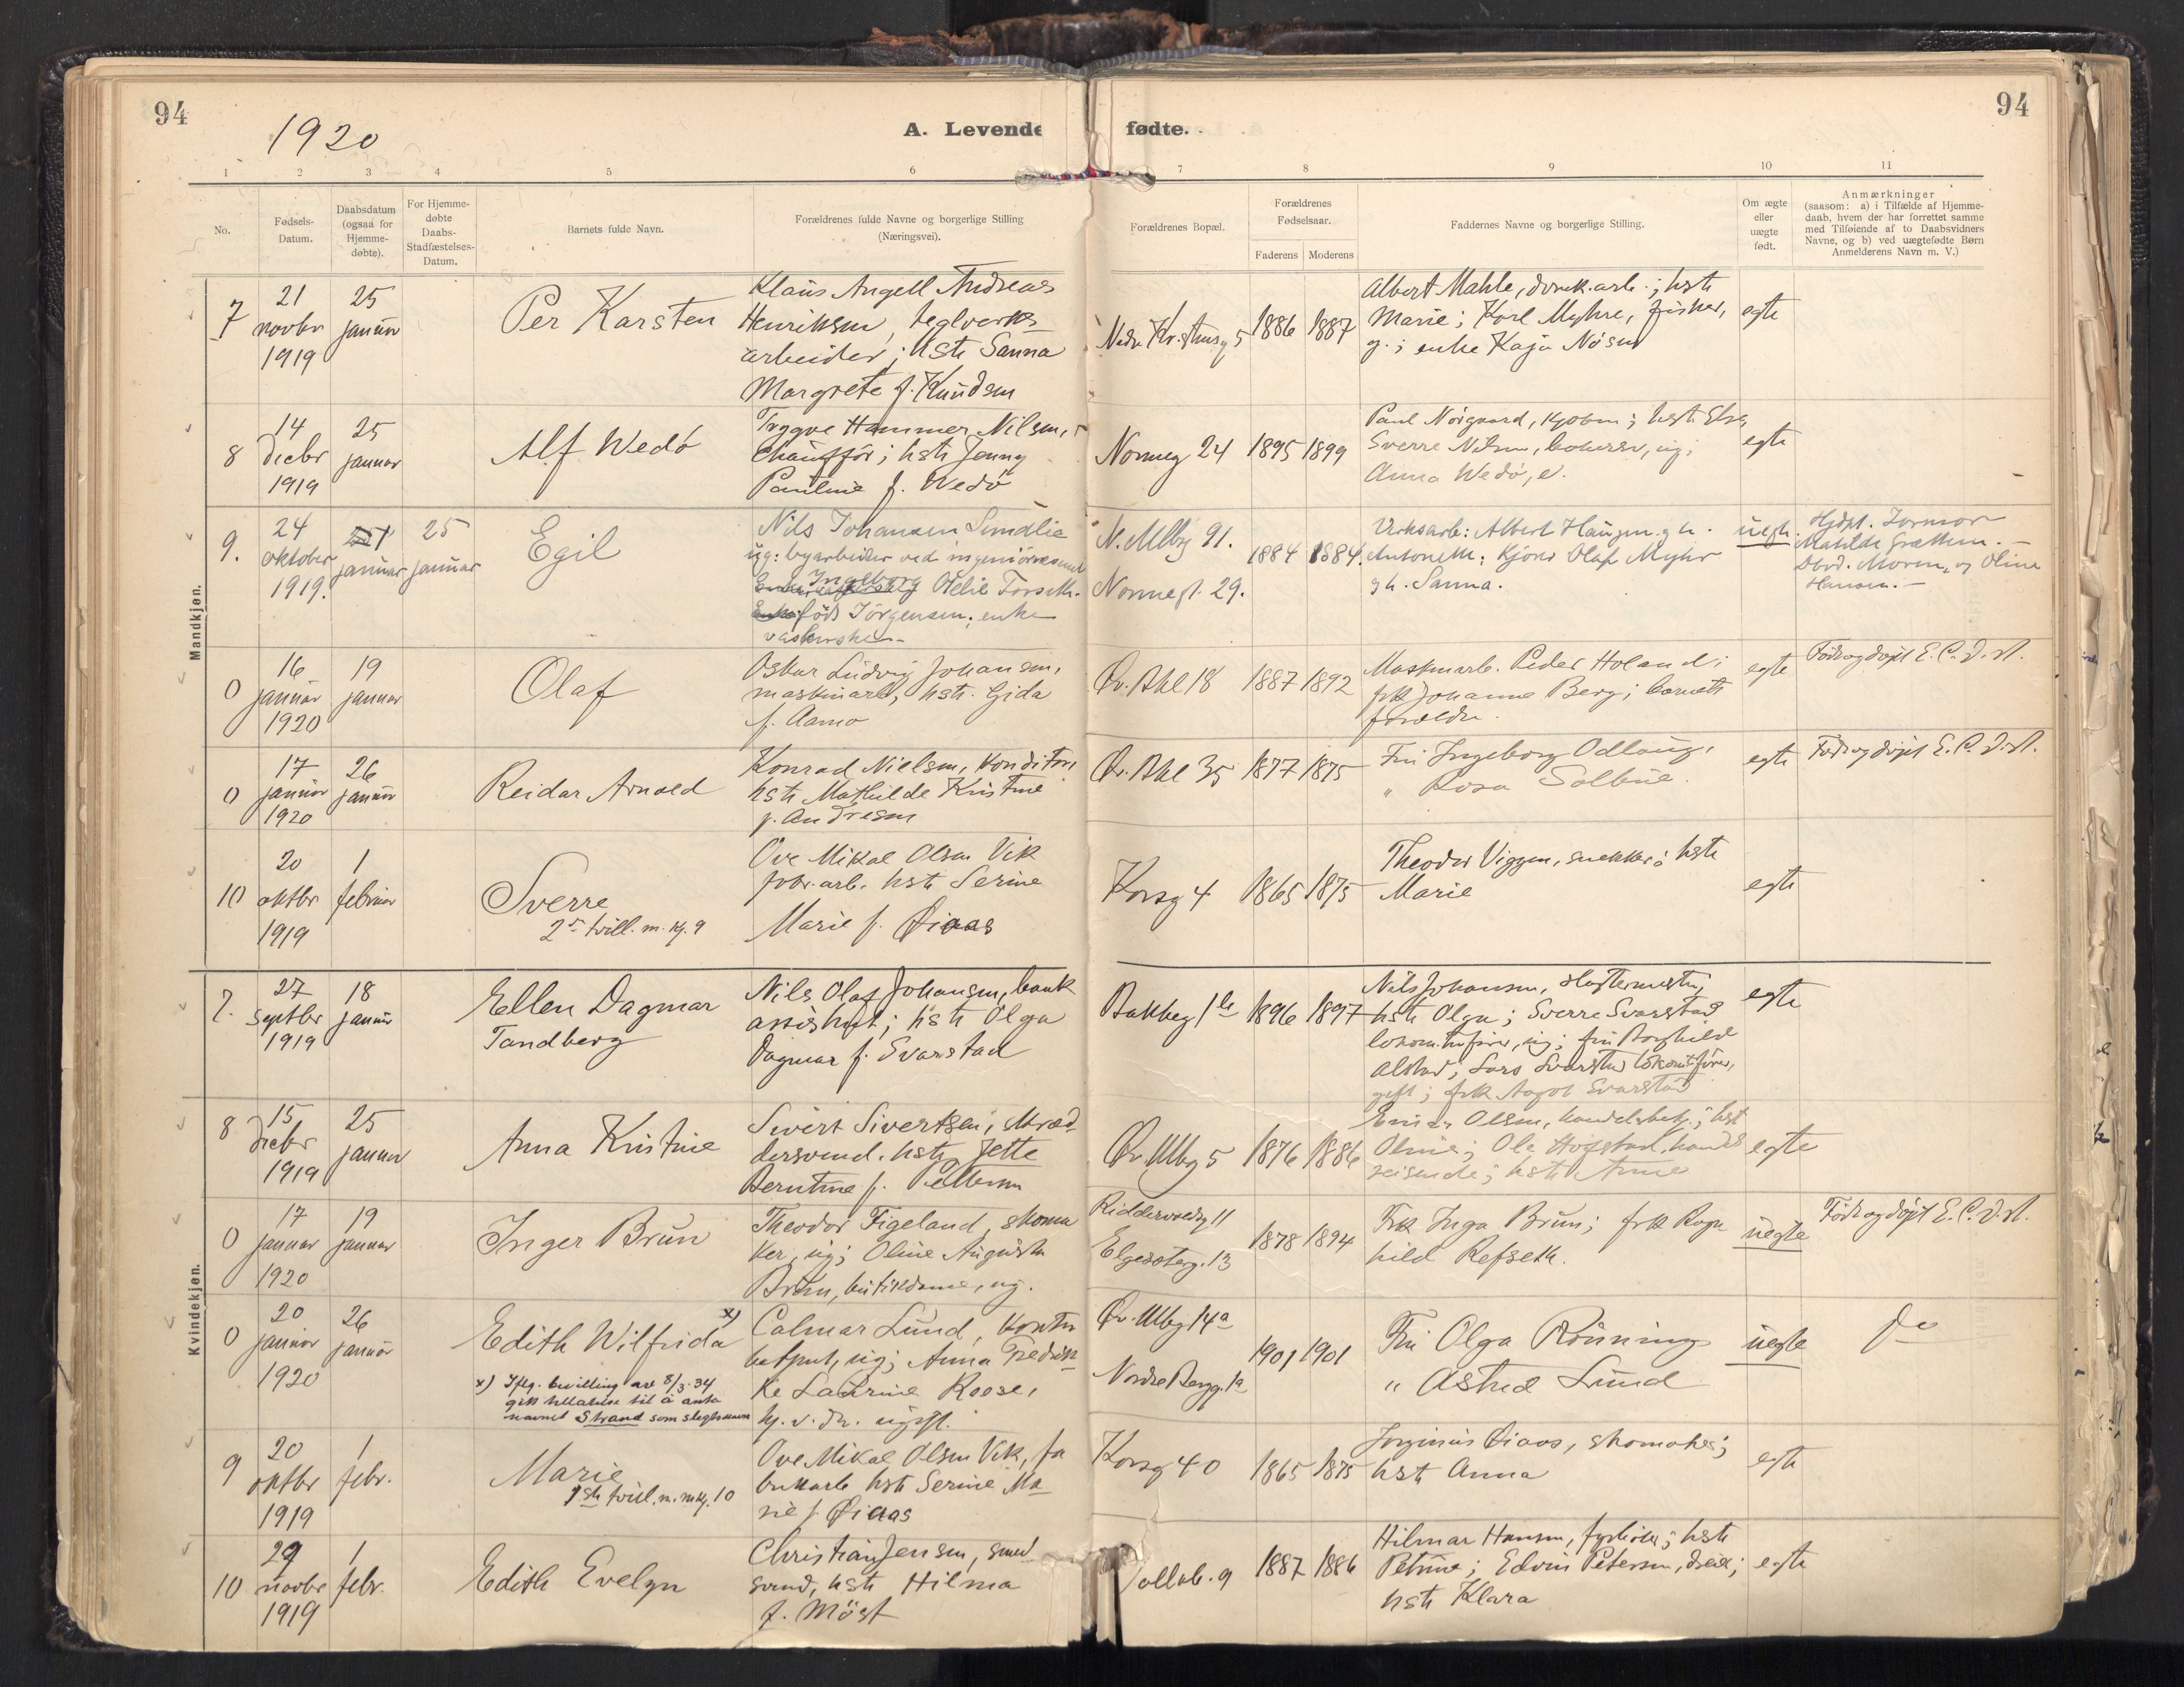 94
94
1920
A. Levende fødte.
1 2 3 4 5 6 7 8 9 10 11
No.
Fødsels-
Datum.
Daabsdatum
(ogsaa for
Hjemme-
døbte).
For Hjemme-
døbte
Daabs-
Stadfæstelses-
Datum.
Barnets fulde Navn.
Forældrenes fulde Navne og borgerlige Stilling
(Næringsvei).
Forældrenes Bopæl.
Forældrenes
Fødselsaar.
Faderens Moderens
Faddernes Navne og borgerlige Stilling.
Om ægte
eller
uægte
født.
Anmærkninger
(saasom: a) i Tilfælde af Hjemme-
daab, hvem der har forrettet samme
med Tilføiende af to Daabsvidners
Navne, og b) ved uægtefødte Børn
Anmelderens Navn m. V.)
Mandkjøn.
7
21
novbr
1919
25
januar
Per Karsten
Klaus Angell Andreas
Henriksen, teglverks
arbeider; hstr Sanna
Margrete f. Knudsen
1886 1887
Albert Mahle, arb.; hstr
Marie; Karl Myhre, fisker,
g.; enke Kaja
egte
8
14
decbr
1919
25
januar
Alf Wedø
Trygve Hammer Nilsen,
Chauffør; hstr Jenny
Pauline f. Wedø
Normeg 24
1895 1899
Paul Nørgaard, ; hstr Else,
Sverre Nilsen, ug;
Anna Wedø, e.
egte
9.
24
oktober
1919.
januar
25
januar
Egil
Nils Johansen
ug: byarbeider ved ingeniørvesenet
Ingeborg Otelie Forseth.
født Jørgensen, enke
vaskerske.-
N. Mlbg 91.
29.
1884 1884.
Verksarb: Albert Haugen g h.
Antonette: Kjører Olaf Myhr
g h. Sanna.
uegte.
Hjdpt. Jormor
Matilde -
Dbvd. Moren, og Oline
Hansen.-
0
16
januar
1920
19
januar
Olaf
Oskar Ludvig Johansen,
maskinarb, hstr. Gida
f. Aamo
Øv. Bkl 18
1887 1892
Maskinarb. Peder Holand;
frk Johanne Berg; barnets
forældre.
egte
Født og døpt E. C. D. st.
0
17
januar
1920
26
januar
Reidar Arnold
Konrad Nielsen, Konditor,
hstr Mathilde Kristine
f. Andresen
Øv. Bkl 35
1877 1875
Fru Ingeborg Odlaug,
" Rosa
egte
Født og døpt E. C. D. st.
10
20
oktbr
1919
1
februar
Sverre
2den tvill. m. kj. 9
Ove Mikal Olsen Vik
fabr. arb. hstr Serine
Marie f. Øiaas
Korsg 4
1865 1875
Theodor Viggen, snekker; hstr
Marie
egte
Kvindekjøn.
7.
27
septbr
1919
18
januar
Ellen Dagmar
Tandberg
Nils Olaf Johansen, bank
assistent; hstr Olga
Dagmar f. Svarstad
1896 1897
Nils Johansen, slagtermester;
hstr Olga; Sverre Svarstad
ug; fru Borghild
Alstad; Lars Svarstad lokomtfører,
gift; frk Aagot Svarstad
egte
8
15
decbr
1919
25
januar
Anna Kristine
Sivert Sivertsen, skræd
dersvend. hstr Jette
Berntine f. Pettersen
Øv. Mlbg 5
1876 1886
Einar Olsen, handelsbetj.; hstr
Oline; Ole Hofstad, handels
reisende; hstr Anne
egte
0
17
januar
1920
19
januar
Inger Brun
Theodor Figeland, skoma
ker, ug; Oline Augusta
Brun, butikdame, ug.
Riddervoldsg 11
Elgesæterg. 13
1878 1894
Frk Inga Brun; frk Ragn
hild Refseth.
uegte
Født og døpt E. C. D. st.
0
20
januar
1920
26
januar
Edith Wilfrida x)
x) Iflg. bevilling av 8/3-34
gitt tillatelse til å anta
navnet Strand som slegtsnavn
Calmar Lund, kontor
betjent, ug; Anna Fredrik
ke Laurine Roose,
hj. v. dr. ugift.
Øv. Mlbg 14a
Nordre Bergg. 1a
1901 1901
Fru Olga Rönning
" Astrid Lund
uegte
do
9
20
oktbr
1919
1
febr.
Marie
1ste tvill. m. mkj. 10
Ove Mikal Olsen Vik, fa
brikarb hstr Serine Ma
rie f. Øiaas
Korsg 40
1865 1875
Jørginius Øiaas, skomaker;
hstr Anna
egte
10
29
novbr
1919
1
febr.
Edith Evelyn
Christian Jensen, smed
svend, hstr Hilma
f. Möst
1887 1886
Hilmar Hansen, fyrbøter; hstr
Petrine; Edvin Petersen, ;
hstr Klara
egte